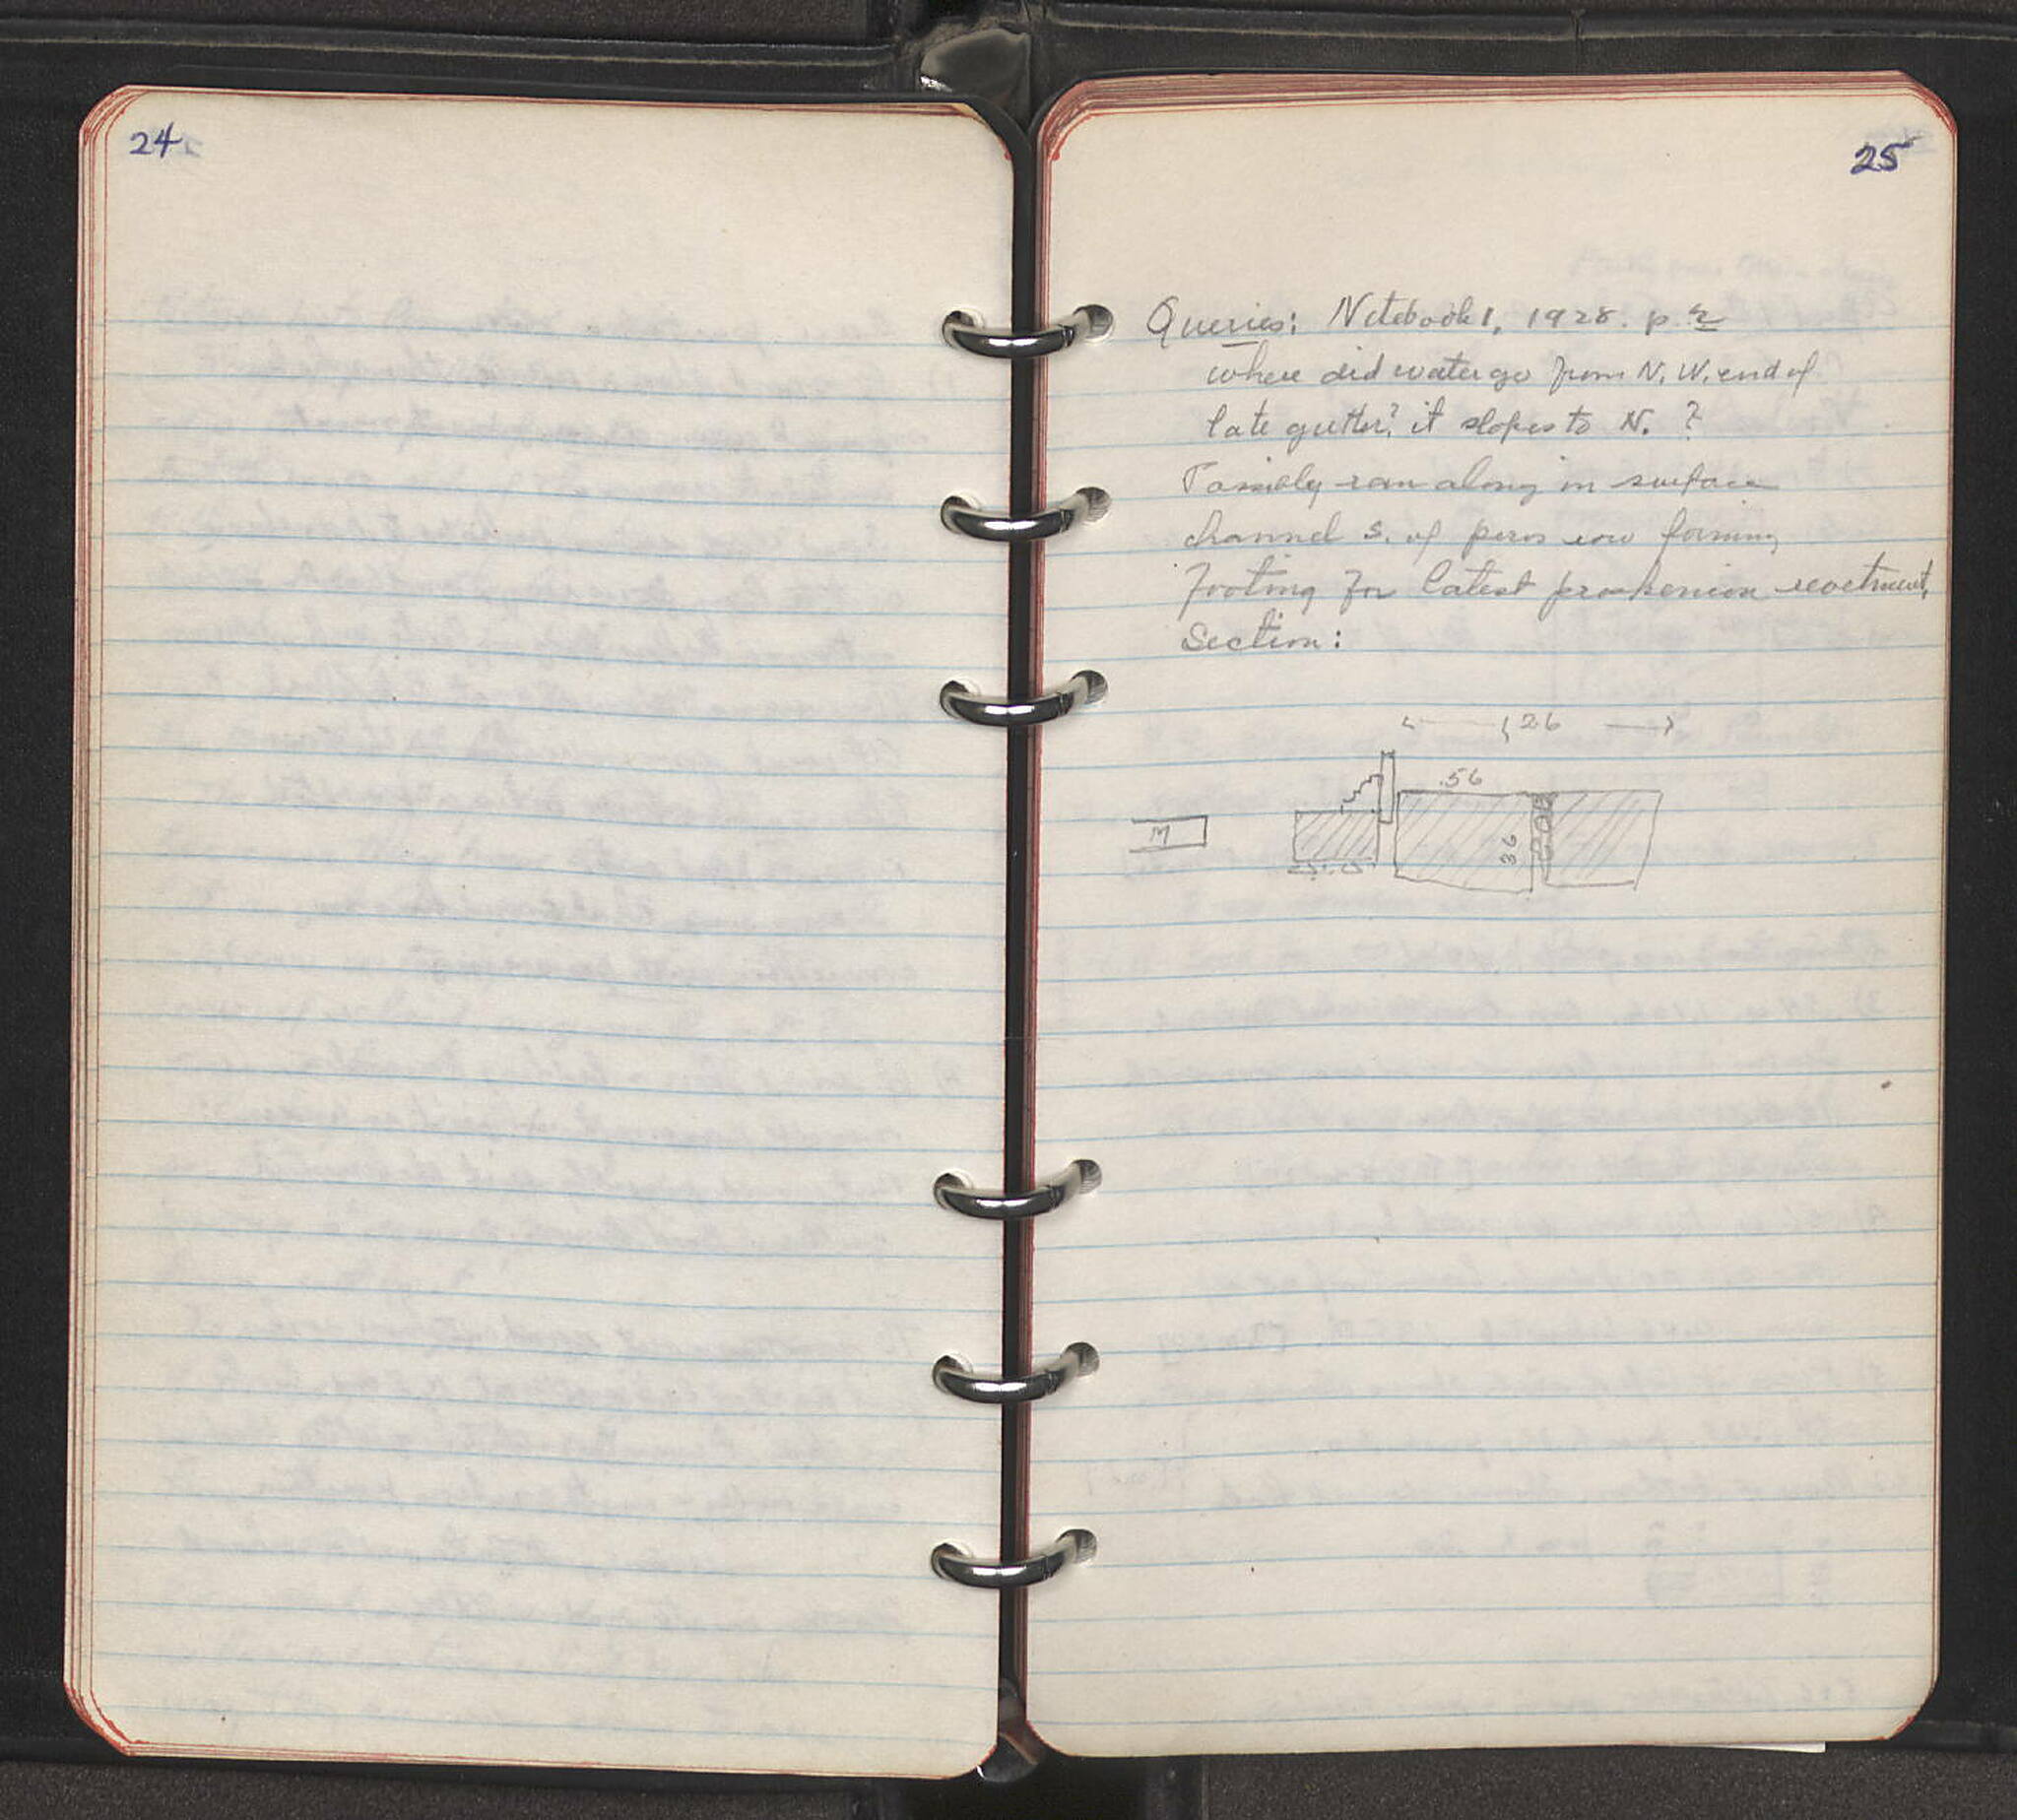 24
25
Queries: Notebook 1, 1928. p. 2
where did water go from N. W. end of
late gutter? it slopes to N. ?
Possibly ran along in surface
channel S. of poros row forming
footing for latest proskenion revetment,
Section:
1,26
.56
M
36